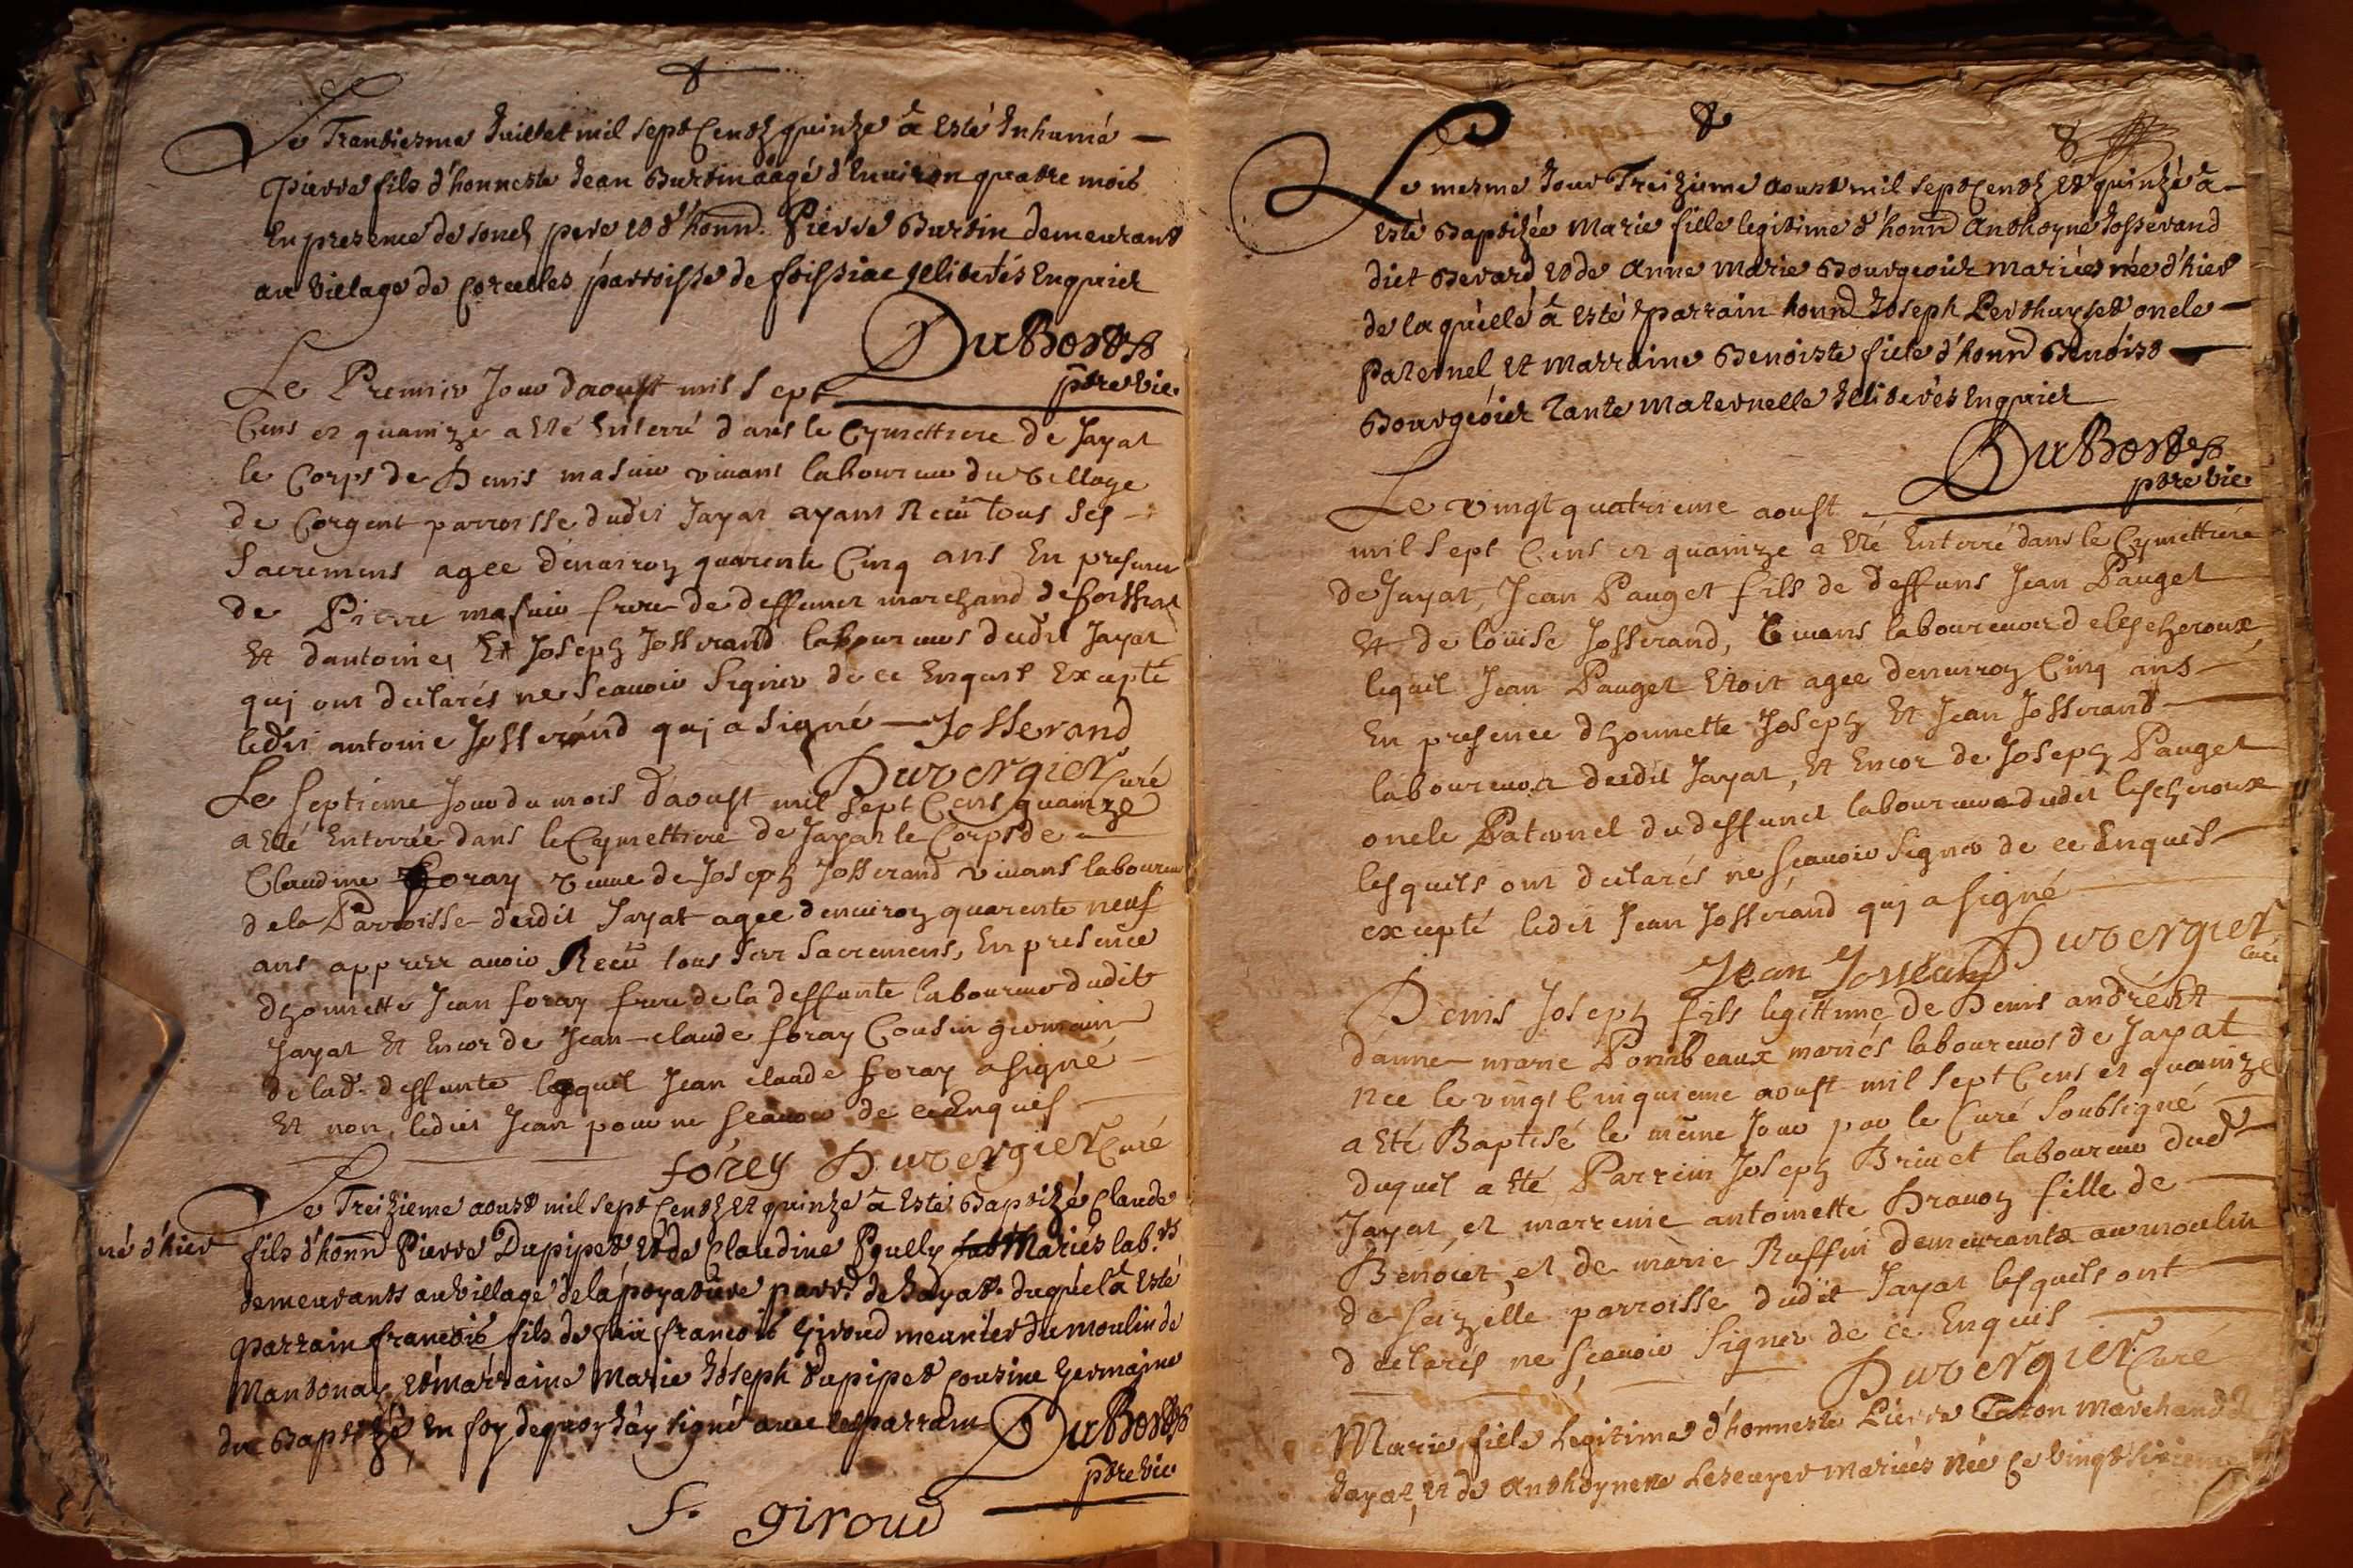 Le Trantiesme Juillet mil sept Centz quinze à Esté Inhumé
Pierre fils d'honneste Jean Burtin aagé d'Environ quatre mois
En presence de pere et d'honn. Pierre Burtin demeurant
au Village de Corcelles parroisse de foissiac Illiterés Enquis
DuBost
ptre vic.
Le Premier Jour daoust mil sept
Cens et quainze a Eté Enterré dans le Cymettiere de Jayat
le Corps de Denis masuir vivant laboureur du village
de Corgent parroisse dudit Jayat ayant Receü tous Ses
Sacremens agee denviron quarente Cinq ans En presence
de Pierre masuir frere de deffunct marchand de foissiat
Et dantoine, Et Joseph Josserand laboureurs dudit Jayat
qui ont declarés ne Scauoir Signer de ce Enquis Excepté
ledit antoine Josserand qui a signé Josserand
Duvergier Curé
Le septieme Jour du mois daoust mil sept Cens quainze
a Eté Enterrée dans le Cymettiere de Jayat le Corps de
Claudine foray veuue de Joseph Josserand vivant laboureur
de la Parroisse dudit Jayat agee denviron quarente neuf
ans apprez auoir Receü tous Sacremens, En presence
dhonnette Jean foray frere de la deffunte laboureur dudit
Jayat Et Encor de Jean-claude foray Cousin germain
de lad. deffunte lequel Jean claude foray a signé
Et non ledit Jean pour ne Scauoir de ce Enquis
forey Duvergier Curé
Le Treizieme aoust mil sept Centz et quinze à Esté Baptizé Claude
né d'hier fils d'honn Pierre Dupipet et de Claudine Poully Mariés lab.rs
demeurants au Village de la poyatiere parr. de Jayat. duquel à Esté
parrain francois fils de feü francois Giroud meunier du moulin de
Mantonay et marraine Marie Joseph dupipet Cousine Germaine
du Baptizé En foy de quoy J'ay signé avec le parrain DuBost
ptre vic
f. giroud
Le mesme Jour Treizieme aoust mil sept Centz et quinze à
Esté Baptizée Marie fille legitime d'honn Anthoyne Josserand
dict Berard et de Anne Marie Bourgeois mariés née d'hier
de laquelle à Esté parrain honn Joseph Perthuyset oncle
Paternel et Marraine Benoiste fille d'honn Benoist
Bourgeois Tante Maternelle Illiterés Enquis
DuBost
ptre vic.
Le vingt quatrieme aoust
mil sept Cens et quainze a Eté Enterré dans le Cymettiere
de Jayat, Jean Pauget fils de deffuns Jean Pauget
Et de loüise Josserand, vivans laboureurs de lescheroux
lequel Jean Pauget Etoit agee denviron Cinq ans
En presence dhonnette Joseph Et Jean Josserand
laboureurs dudit Jayat, Et Encor de Joseph Pauget
oncle Paternel du deffunct laboureur dudit lescheroux
lesquels ont declarés ne Scauoir Signer de ce Enquis
excepté ledit Jean Josserand qui a signé
Jean Josserand Duvergier
Curé
Denis Joseph fils legittime de Denis andré Et
danne-marie Pombeaux mariés laboureurs de Jayat
née le vingt Cinquieme aoust mil sept Cens et quainze
a Eté Baptisé le même Jour par le Curé Soubsigné
duquel a été Parrein Joseph Brinet laboureur dud
Jayat, et marreine antoinette Dravoy fille de
Benoiet, et de marie Ruffin demeurante au moulin
de seizelle parroisse dudit Jayat lesquels ont
declarés ne Scauoir Signer de ce Enquis
Duvergier Curé
Marie fille Legitime d'honneste Pierre Taton Marchand
Jayat, et de Anthoynette Lescuyer mariés née ce Vingt